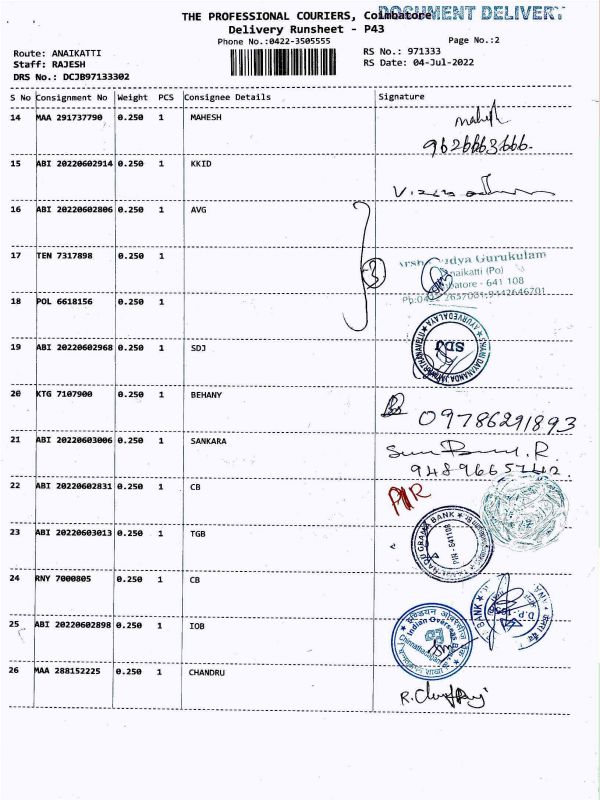 DOCUMENT DELIVERY
THE PROFESSIONAL COURIERS, Coimbatore
Delivery Runsheet - P43
Phone No.:0422-3505555
Page No.:2
Route: ANAIKATTI
RS No.: 971333
Staff: RAJESH
RS Date: 04-Jul-2022
DRS No.: DCJB97133302
S No Consignment No Weight PCS Consignee Details Signature
14 MAA 291737790 0.250 1 MAHESH
Mahesh
9626663666.
15 ABI 20220602914 0.250 1 KKID
16 ABI 20220602806 0.250 1 AVG
17 TEN 7317898 0.250 1
3
Gurukulam
Anaikatti (Po)
641 108
2657001,9442646701
18 POL 6618156 0.250 1
19 ABI 20220602968 0.250 1 SDJ
SDJ
20 KTG 7107900 0.250 1 BEHANY
09786291893
21 ABI 20220603006 0.250 1 SANKARA
22 ABI 20220602831 0.250 1 CB
23 ABI 20220603013 0.250 1 TGB
GRAMA BANK
PIN - 641108
24 RNY 7000805 0.250 1 CB
BANK
25 ABI 20220602898 0.250 1 IOB
Indian Overseas
26 MAA 288152225 0.250 1 CHANDRU